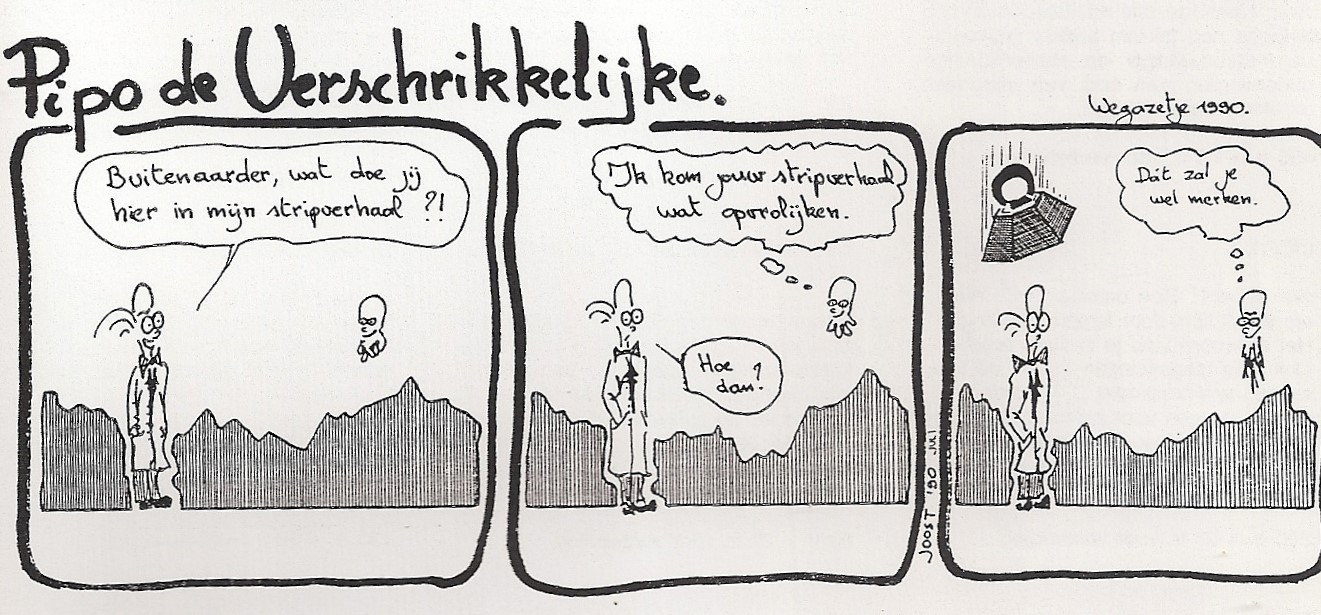 Pipo de Verschrikkelijke.
Wegazetje 1990.
Buitenaarder, wat doe jij
hier in mijn stripverhaal ?!
Ik kom jouw stripverhaal
wat opvrolijken.
Hoe
dan?
JOOST '90 JULI
Dát zal je
wel merken.